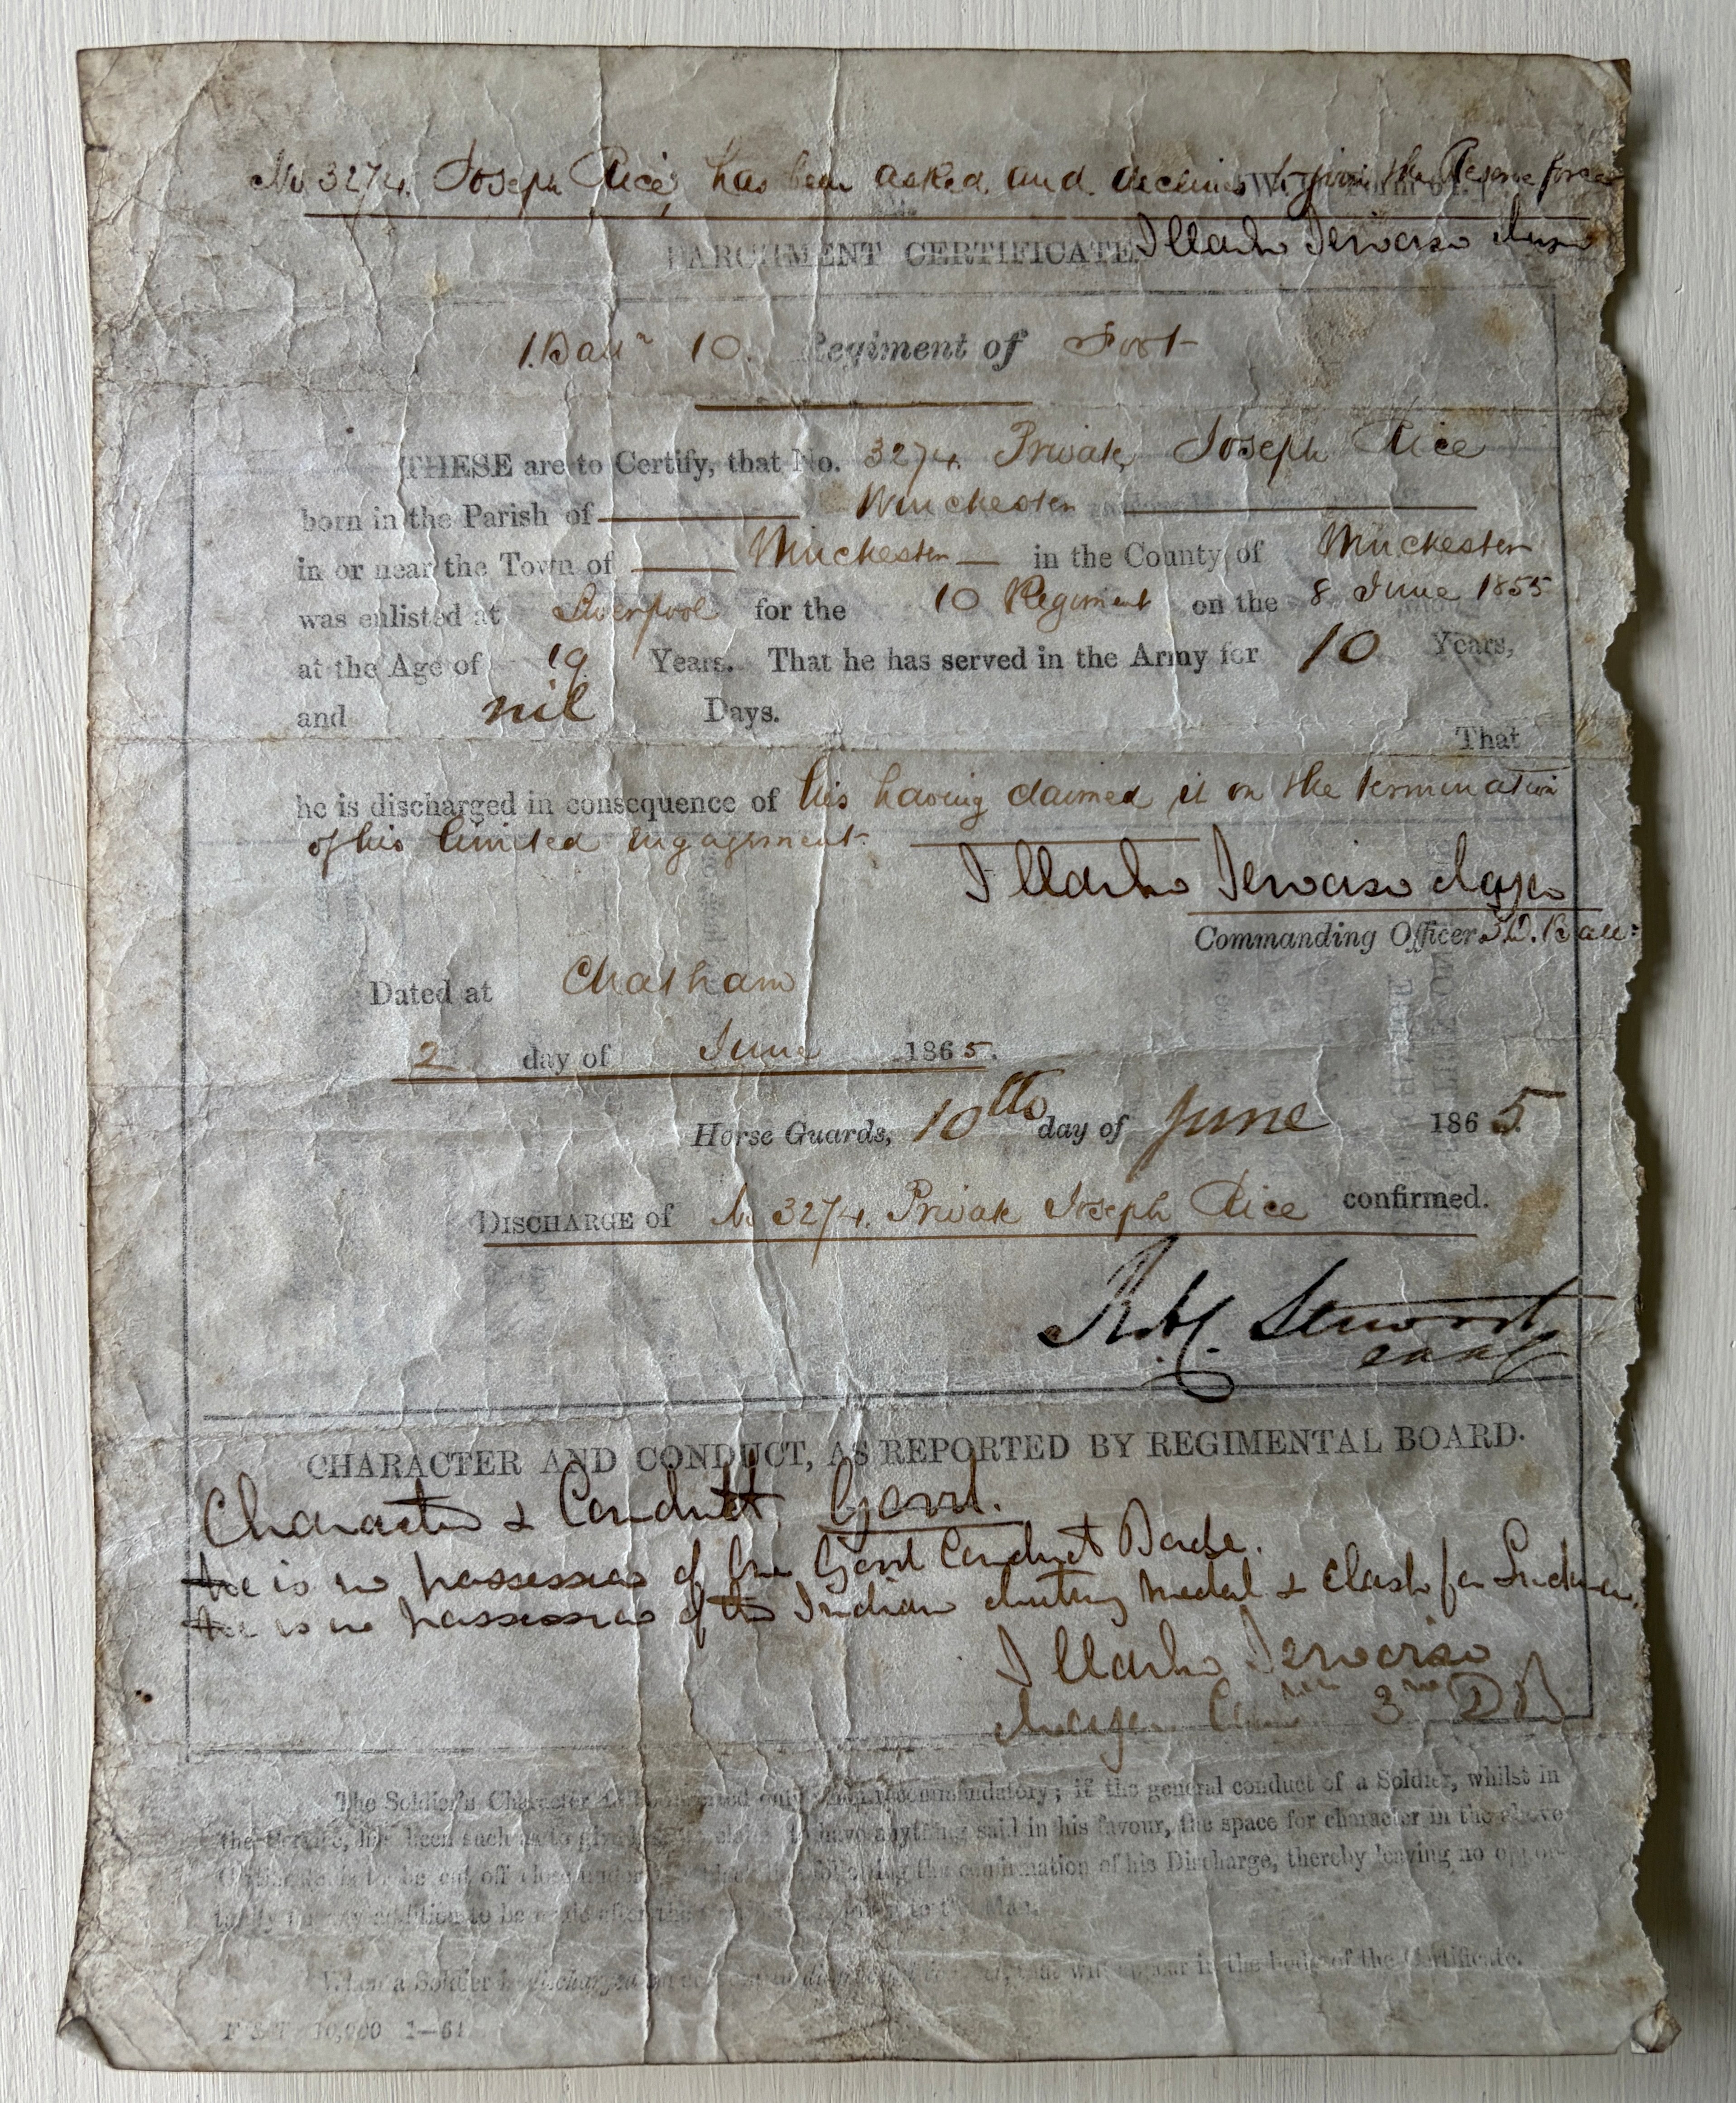 No 3274. Joseph Rice, has been asked and declines to join the Reserve force
PARCHMENT CERTIFICATE
1. Batt'n 10. Regiment of Foot
THESE are to Certify, that No. 3274 Private Joseph Rice
born in the Parish of Winchester
in or near the Town of Winchester in the County of Winchester
was enlisted at Liverpool for the 10 Regiment on the 8 June 1855
at the Age of 19 Years. That he has served in the Army for 10 Years,
and nil Days.
That
he is discharged in consequence of his having claimed it on the termination
of his limited engagement.
Commanding Officer
Dated at Chatham
2 day of June 1865.
Horse Guards, 10th day of June 1865
DISCHARGE of No 3274. Private Joseph Rice confirmed.
CHARACTER AND CONDUCT, AS REPORTED BY REGIMENTAL BOARD.
Character & Conduct Good.
He is in possession of One Good Conduct Badge.
He is in possession of the Indian Mutiny Medal & Clasp for Lucknow.
The Soldier's Character is recommendatory; if the general conduct of a Soldier, whilst in
the Service, has been such as to give to have anything said in his favour, the space for character in the above
Certificate is to be cut off following the confirmation of his Discharge, thereby leaving no oppor-
tunity for any addition to be made after the Man.
When a Soldier is discharged that will appear in the body of the Certificate.
10,000 1—61